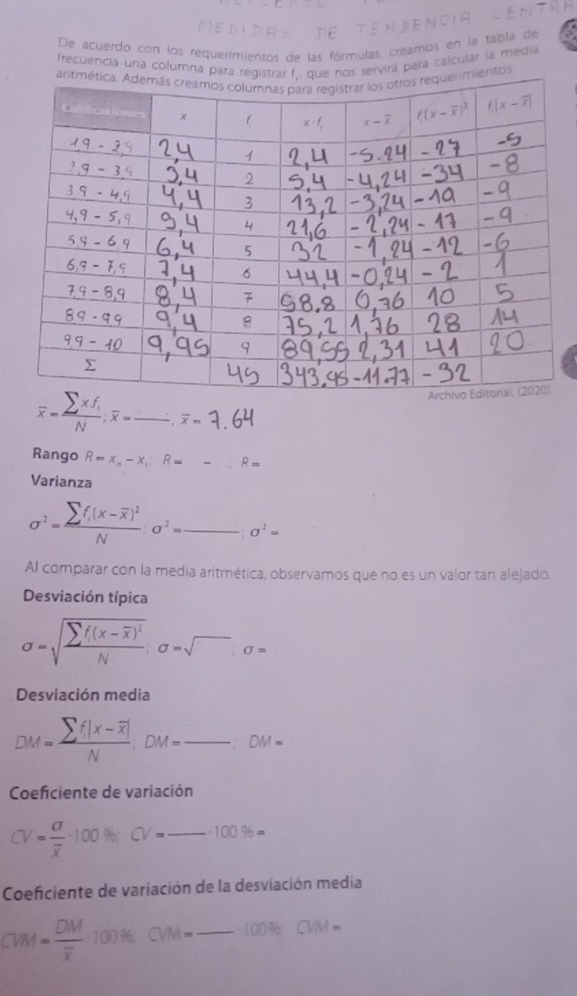 MEDIDAS DE TENDENCIA CENTRA
De acuerdo con los requerimientos de las fórmulas, creamos en la tabla de
frecuencia una columna para registrar fᵢ, que nos servirá para calcular la media
aritmética. Además creamos columnas para registrar los otros requerimientos
Calificaciones x fᵢ x·fᵢ x − x̄ fᵢ(x − x̄)² fᵢ|x − x̄|
1,9 - 2,9 2,4 1 2,4 -5.24 -27 -5
2,9 - 3,9 3.4 2 5,4 -4,24 -34 -8
3,9 - 4,9 4,4 3 13,2 -3,24 -19 -9
4,9 - 5,9 5,4 4 21,6 -2,24 -17 -9
5,9 - 6,9 6,4 5 32 -1,24 -12 -6
6,9 - 7,9 7,4 6 44,4 -0,24 -2 1
7,9 - 8,9 8,4 7 58.8 0,76 10 5
8,9 - 9,9 9,4 8 75,2 1,76 28 14
9,9 - 10 9,95 9 89,55 2,31 41 20
Σ 45 343,45 -11.77 -32
Archivo Editorial, (2020).
x̄ = Σxfᵢ/N; x̄ = ——, x̄ = 7.64
Rango R = xₙ − x₁; R = - ; R =
Varianza
σ² = Σfᵢ(x − x̄)²/N; σ² = ——; σ² =
Al comparar con la media aritmética, observamos que no es un valor tan alejado.
Desviación típica
σ = √(Σfᵢ(x − x̄)²/N); σ = √ , σ =
Desviación media
DM = Σfᵢ|x − x̄|/N; DM = ——; DM =
Coeficiente de variación
CV = σ/x̄ · 100 %; CV = —— · 100 % =
Coeficiente de variación de la desviación media
CVM = DM/x̄ · 100 %; CVM = —— · 100 %; CVM =